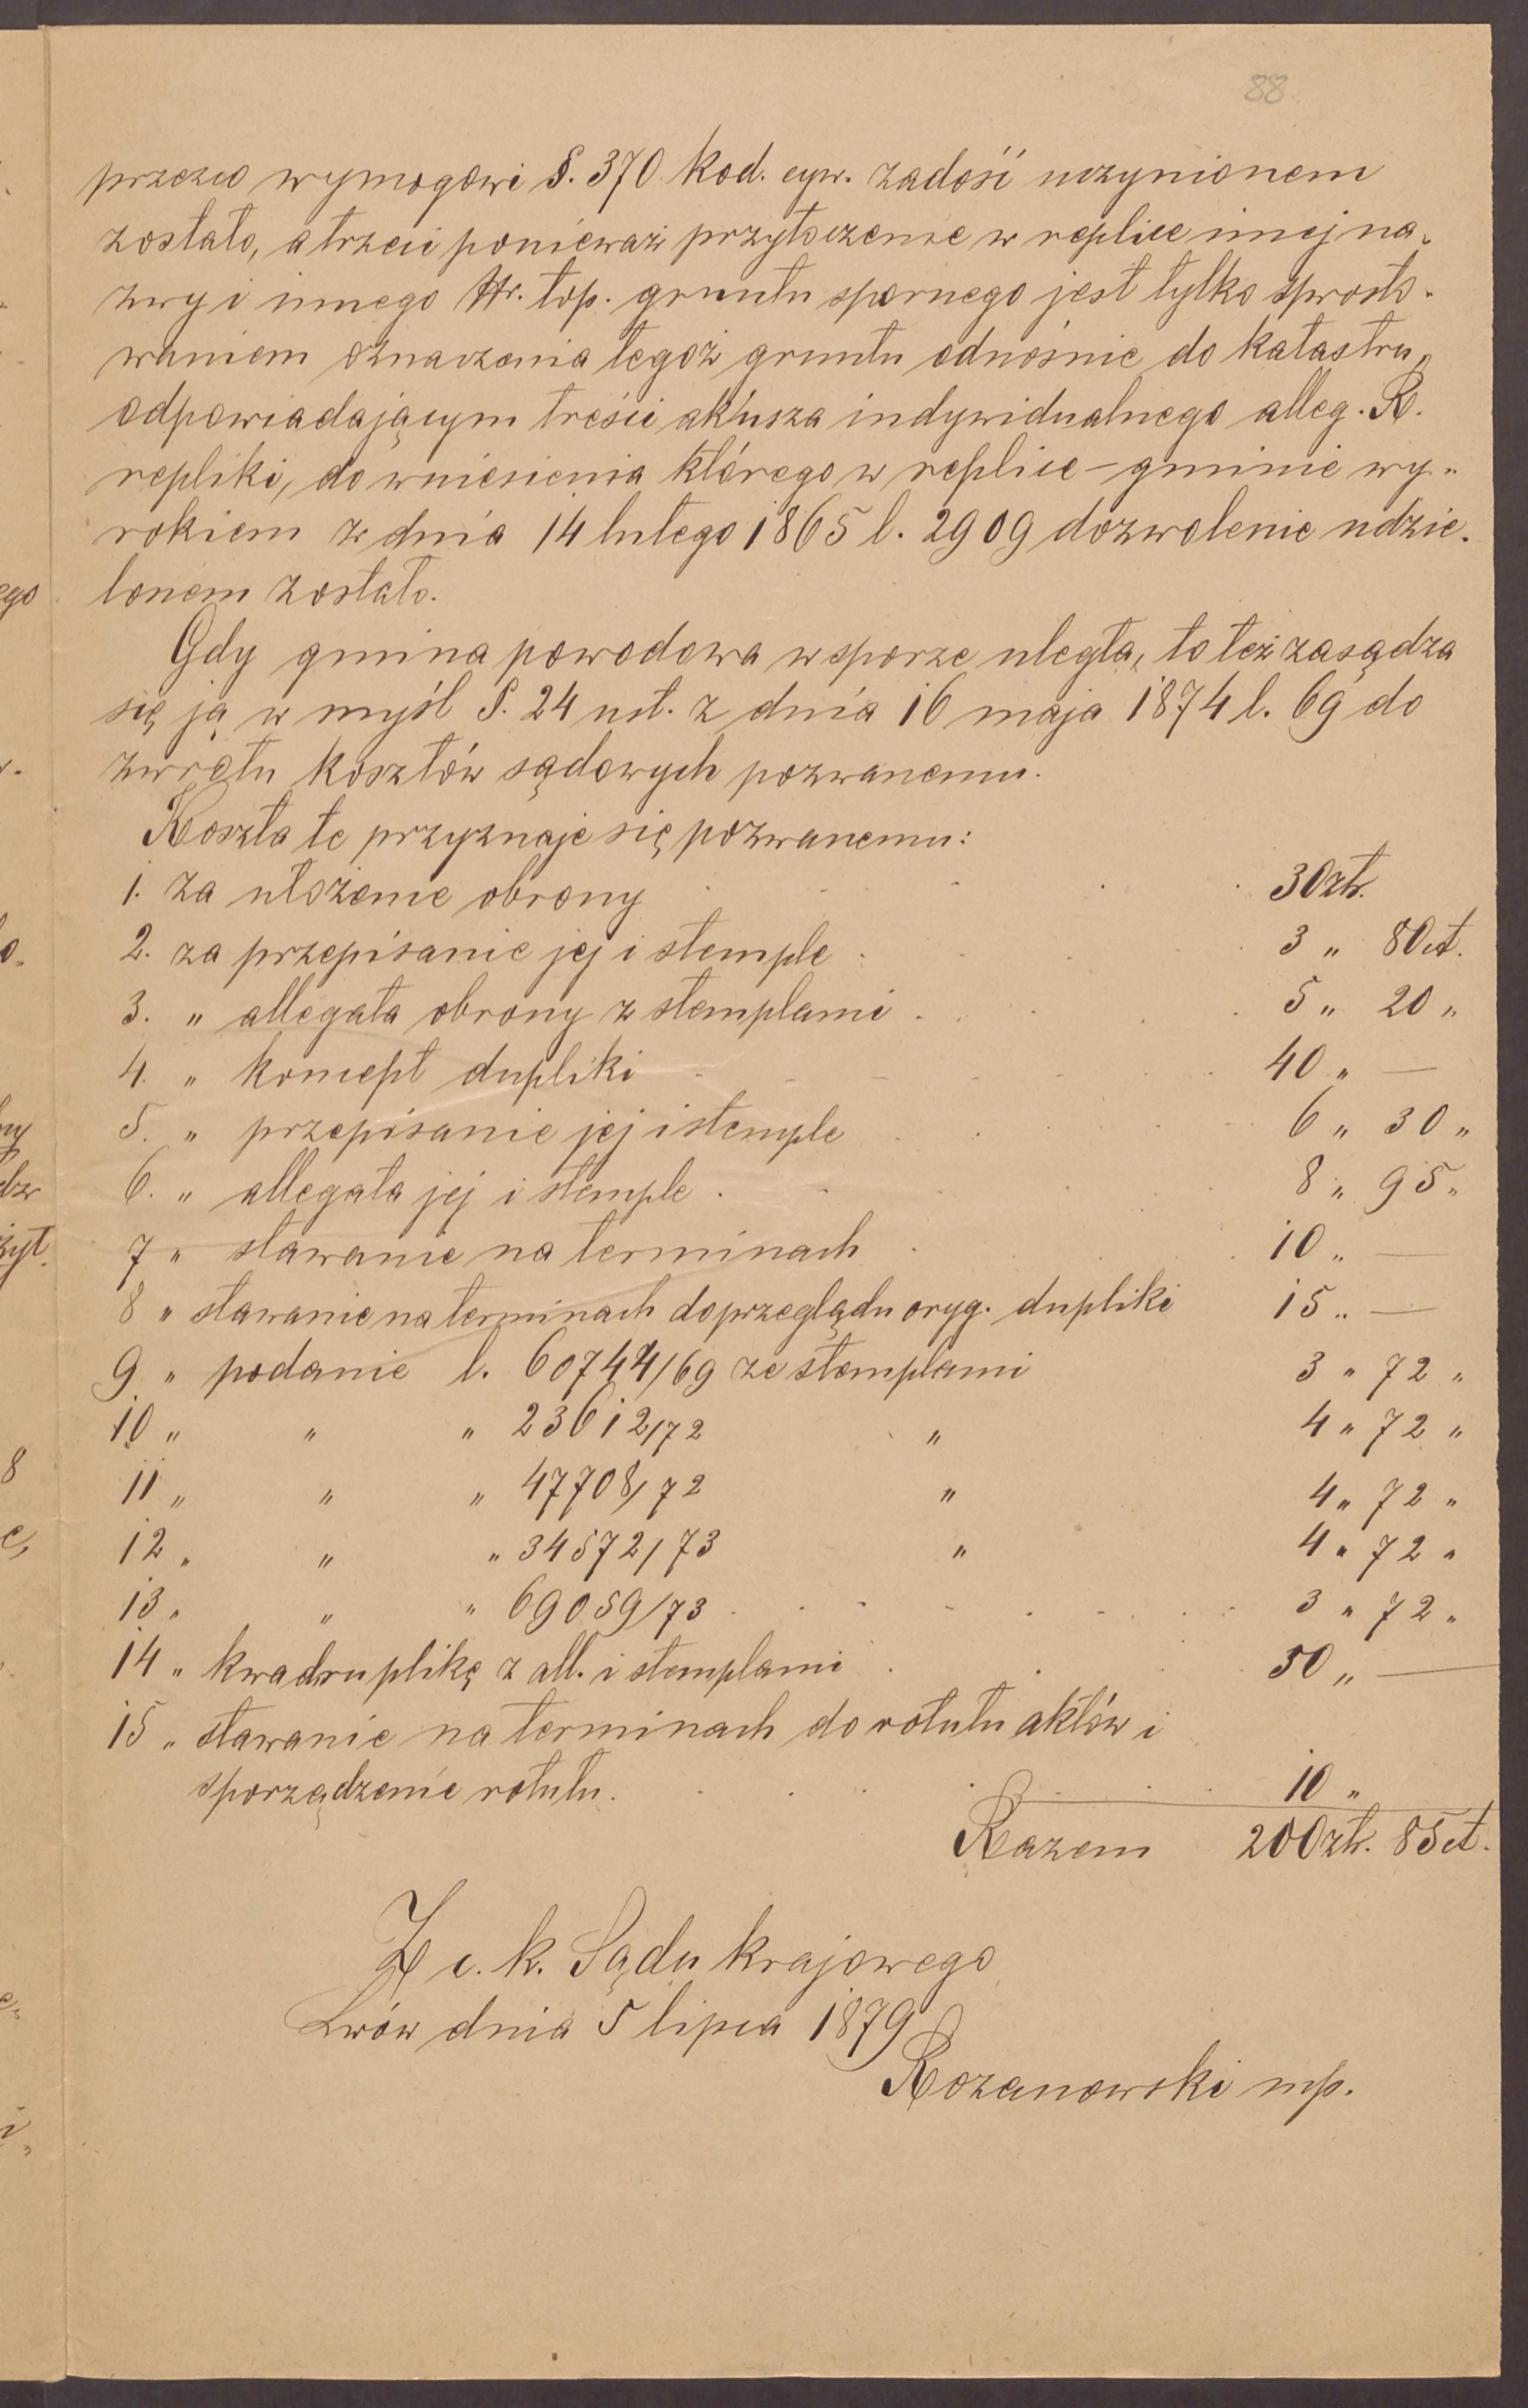 88
przezco wymogowi §. 370 kod. cyw. zadość uczynionem
zostało, a trzeci ponieważ przytoczenie w replice innej na„
zwy i innego Nr. top. gruntu spornego jest tylko sprosto„
waniem oznaczenia tegoż gruntu odnośnie do katastru„
odpowiadającym treści arkusza indywidualnego alleg. R.
repliki, do wniesienia którego w replice – gminie wy„
rokiem z dnia 14 lutego 1865 l. 2909 dozwolenie udzie„
lonem zostało.
Gdy gmina powodowa w sporze uległa, to też zasądza
się ją w myśl §. 24 ust. z dnia 16 maja 1874 l. 69 do
zwrotu kosztów sądowych pozwanemu.
Koszta te przyznaje się pozwanemu:
1. za ułożenie obrony 30 złr.
2. za przepisanie jej i stemple 3 „ 80 ct.
3. „ allegata obrony z stemplami 5 „ 20 „
4. „ koncept dupliki 40 „ —
5. „ przepisanie jej i stemple 6 „ 30 „
6. „ allegata jej i stemple 8 „ 95 „
7 „ stawanie na terminach 10 „ —
8 „ stawanie na terminach do przeglądu oryg. dupliki 15 „ —
9 „ podanie l. 60744/69 ze stemplami 3 „ 72 „
10 „ „ „ 23612/72 „ 4 „ 72 „
11 „ „ „ 47708/72 „ 4 „ 72 „
12 „ „ „ 34572/73 „ 4 „ 72 „
13 „ „ „ 69059/73 3 „ 72 „
14 „ kwadruplikę z all. i stemplami 50 „ —
15 „ stawanie na terminach do rotułu aktów i
sporządzenie rotułu. 10 „
Razem 200 złr. 85 ct.
Z c. k. Sądu krajowego
Lwów dnia 5 lipca 1879
Rozanowski mp.